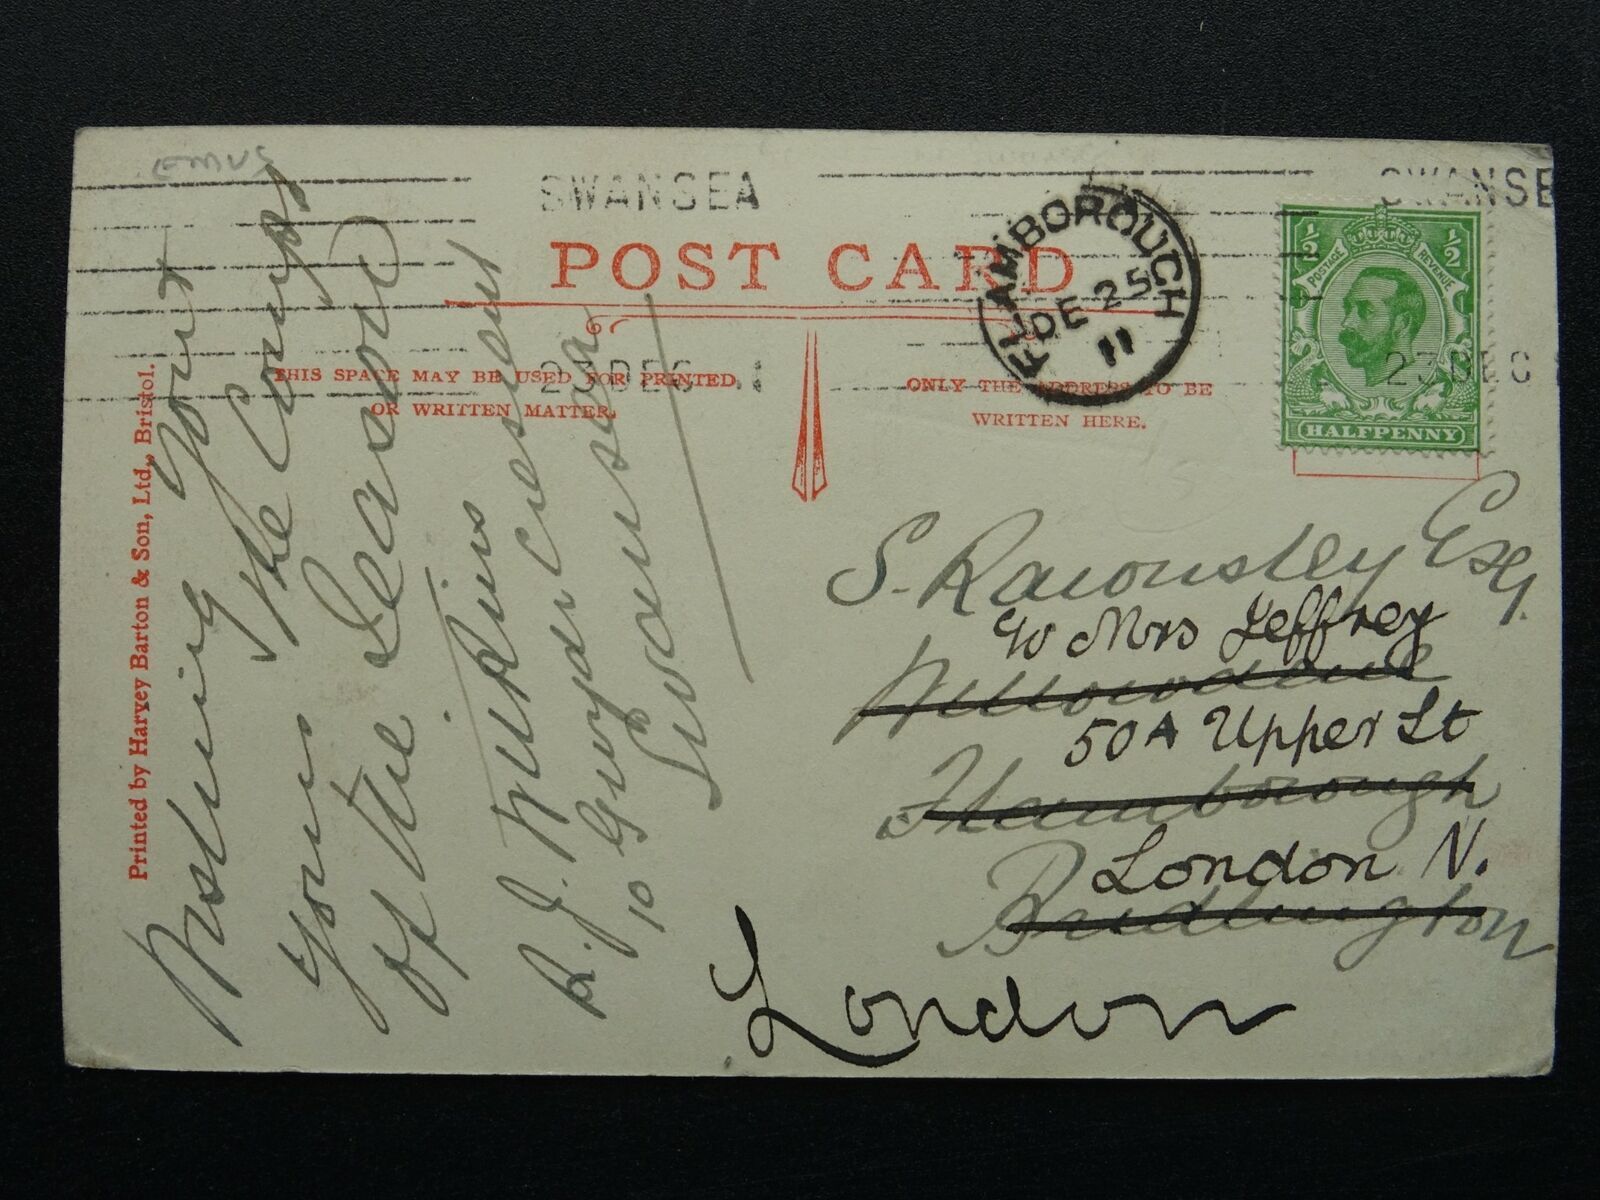 SWANSEA
SWANSE
POST CARD
FLAMBOROUGH
DE 25
11
½ ½
POSTAGE REVENUE
HALFPENNY
23 DEC 11
23 DEC
THIS SPACE MAY BE USED FOR PRINTED
OR WRITTEN MATTER.
ONLY THE ADDRESS TO BE
WRITTEN HERE.
Printed by Harvey Barton & Son, Ltd., Bristol.
Wishing You &
Yours the Comps
of the Season
R. J. Wilkins
10 Gwydr Crescent
Swansea
S. Rawnsley Esq.
c/o Mrs Jeffrey
Willowdene
50A Upper St
Flamborough
London N.
Bridlington
London